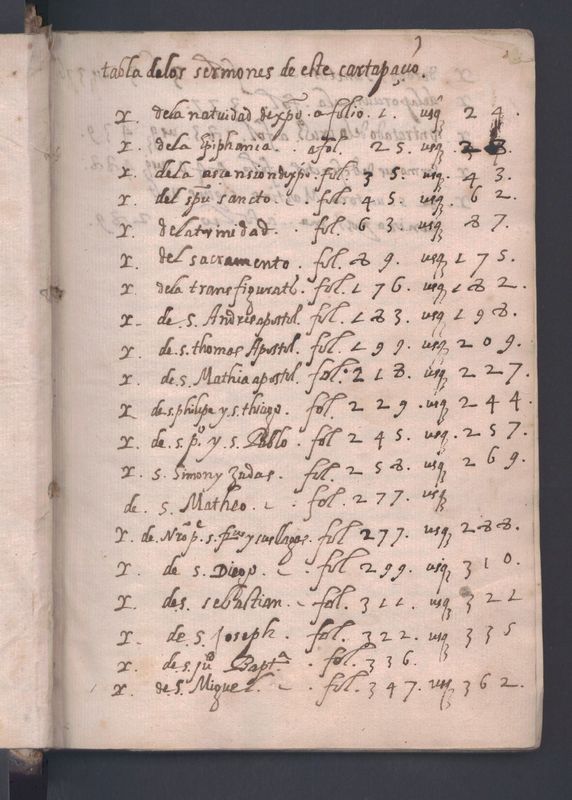 tabla delos sermones de este cartapacio.
x. dela natividad dexpo. a folio. 1. usq 24.
x. de la Epiphania afol. 25. usq 28.
x. dela ascension dexpo. fol. 35. usq. 43.
x. del spu sancto. fol. 45. usq. 62.
x. dela trinidad. fol. 63 usq 87.
x. del sacramento. fol. 89. usq 175.
x. dela transfigurati. fol. 176. usq 182.
x. de. S. Andres apostol. fol. 183. usq 198.
x. de. s. thomas Apostol. fol. 199. usq 209.
x. de. s. Mathia apostol. fol. 218. usq 227.
x de. s. philipe y. s. thiago. fol. 229. usq 244.
x. de s. po. y s. Pablo. fol 245. usq. 257.
x. s. Simon y Judas. fol. 258. usq 269.
de. s. Matheo. fol. 277. usq
x. de. Nro. pe. s. fraco y sus llagas. fol 277. usq 288.
x. de s. Diego. fol 299. usq 310.
x. de s. sebastian. fol. 311. usq 321
x. de s. Joseph. fol. 322. usq 335
x. de. s. ju Bapta. fol. 336.
x. de. S. Miguel. fol. 347. usq 362.